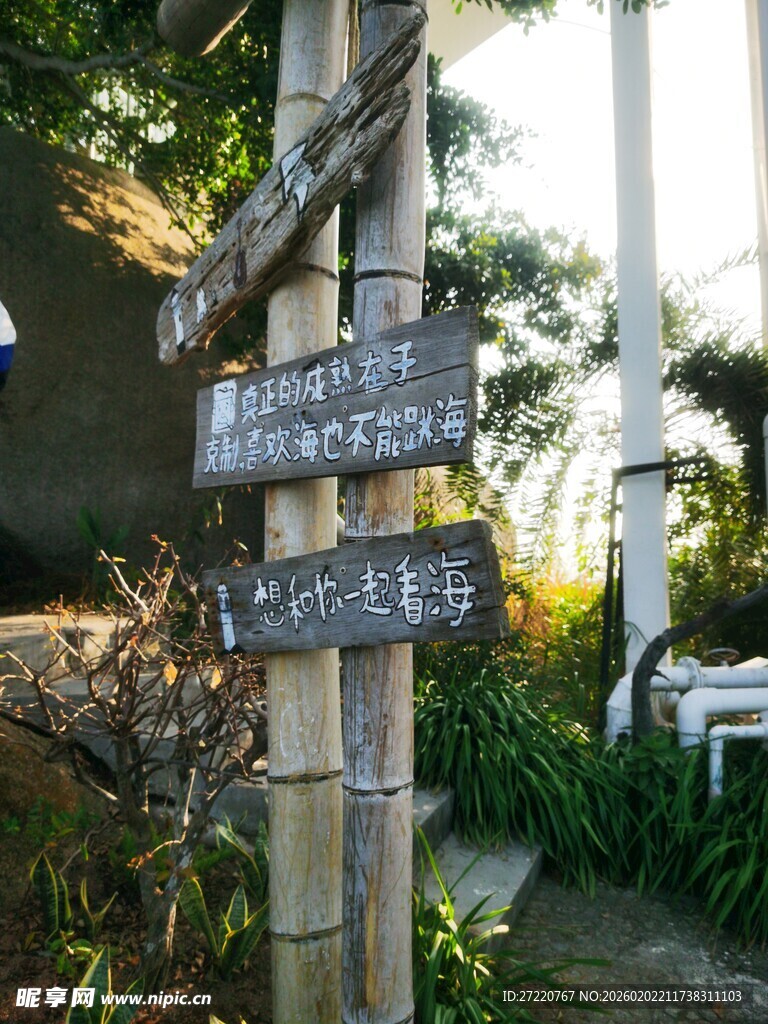 真正的成熟在于
克制,喜欢海也不能跳海
想和你一起看海
昵享网 www.nipic.cn
ID:27220767 NO:20260202211738311103